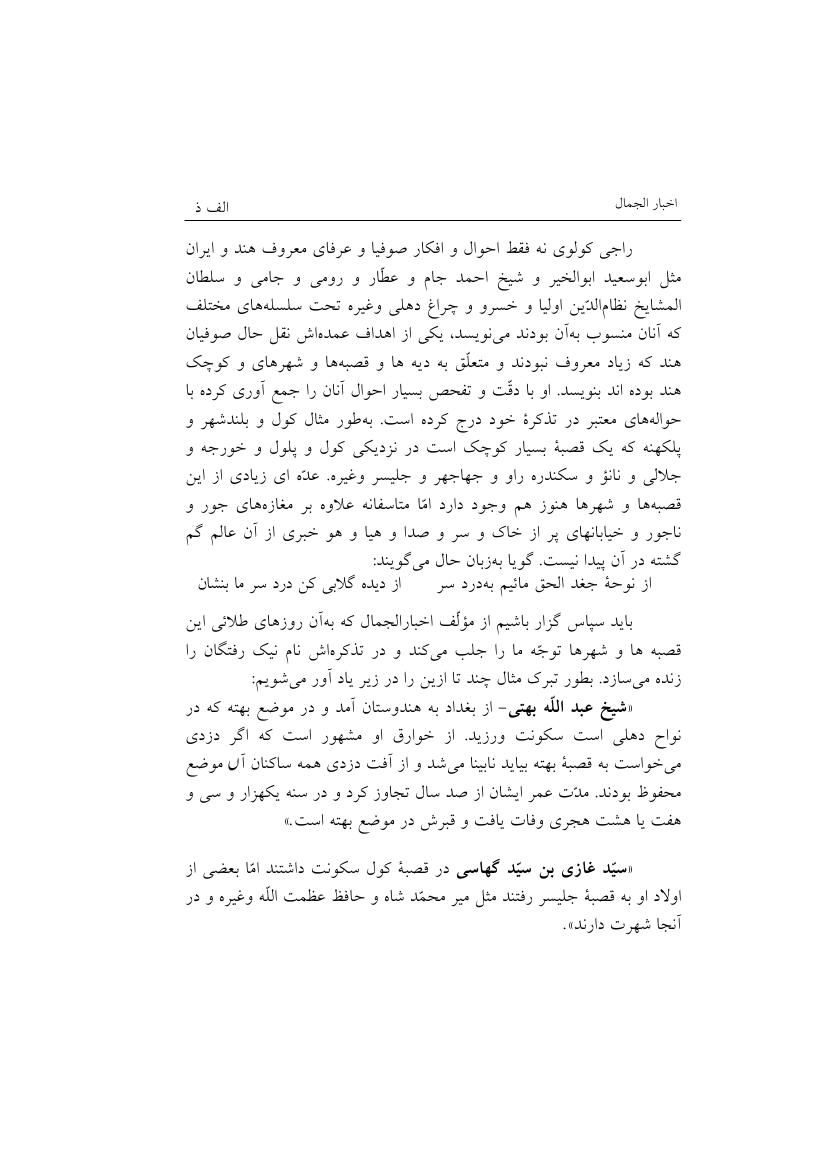 اخبار الجمال
الف ذ
راجی کولوی نه فقط احوال و افکار صوفیا و عرفای معروف هند و ایران
مثل ابوسعید ابوالخیر و شیخ احمد جام و عطّار و رومی و جامی و سلطان
المشایخ نظام‌الدّین اولیا و خسرو و چراغ دهلی وغیره تحت سلسله‌های مختلف
که آنان منسوب به‌آن بودند می‌نویسد، یکی از اهداف عمده‌اش نقل حال صوفیان
هند که زیاد معروف نبودند و متعلّق به دیه ها و قصبه‌ها و شهرهای و کوچک
هند بوده اند بنویسد. او با دقّت و تفحص بسیار احوال آنان را جمع آوری کرده با
حواله‌های معتبر در تذکرهٔ خود درج کرده است. به‌طور مثال کول و بلندشهر و
پلکهنه که یک قصبهٔ بسیار کوچک است در نزدیکی کول و پلول و خورجه و
جلالی و نانؤ و سکندره راو و جهاجهر و جلیسر وغیره. عدّه ای زیادی از این
قصبه‌ها و شهرها هنوز هم وجود دارد امّا متاسفانه علاوه بر مغازه‌های جور و
ناجور و خیابانهای پر از خاک و سر و صدا و هیا و هو خبری از آن عالم گم
گشته در آن پیدا نیست. گویا به‌زبان حال می‌گویند:
از نوحهٔ جغد الحق مائیم به‌درد سر از دیده گلابی کن درد سر ما بنشان
باید سپاس گزار باشیم از مؤلّف اخبارالجمال که به‌آن روزهای طلائی این
قصبه ها و شهرها توجّه ما را جلب می‌کند و در تذکره‌اش نام نیک رفتگان را
زنده می‌سازد. بطور تبرک مثال چند تا ازین را در زیر یاد آور می‌شویم:
«شیخ عبد اللّه بهتی- از بغداد به هندوستان آمد و در موضع بهته که در
نواح دهلی است سکونت ورزید. از خوارق او مشهور است که اگر دزدی
می‌خواست به قصبهٔ بهته بیاید نابینا می‌شد و از آفت دزدی همه ساکنان آں موضع
محفوظ بودند. مدّت عمر ایشان از صد سال تجاوز کرد و در سنه یکهزار و سی و
هفت یا هشت هجری وفات یافت و قبرش در موضع بهته است.»
«سیّد غازی بن سیّد گهاسی در قصبهٔ کول سکونت داشتند امّا بعضی از
اولاد او به قصبهٔ جلیسر رفتند مثل میر محمّد شاه و حافظ عظمت اللّه وغیره و در
آنجا شهرت دارند».